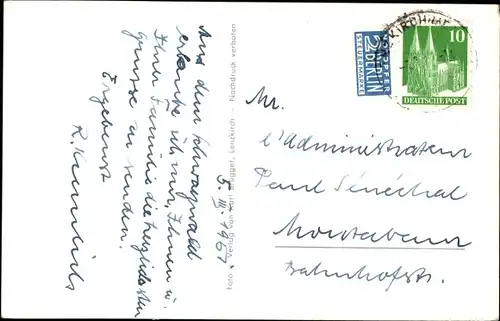 Aus dem Schwarzwald
erlaube ich mir, Ihnen u.
Ihrer Familie die herzlichsten
Grüsse zu senden.
Ergebenst
5. III. 1951
Foto Verlag von Karl Brügger, Lenzkirch - Nachdruck verboten
NOTOPFER
2 BERLIN
STEUERMARKE
10
DEUTSCHE POST
Mr.
l'Administrateur
Paul Sénéchal
Montabaur
Bahnhofstr.